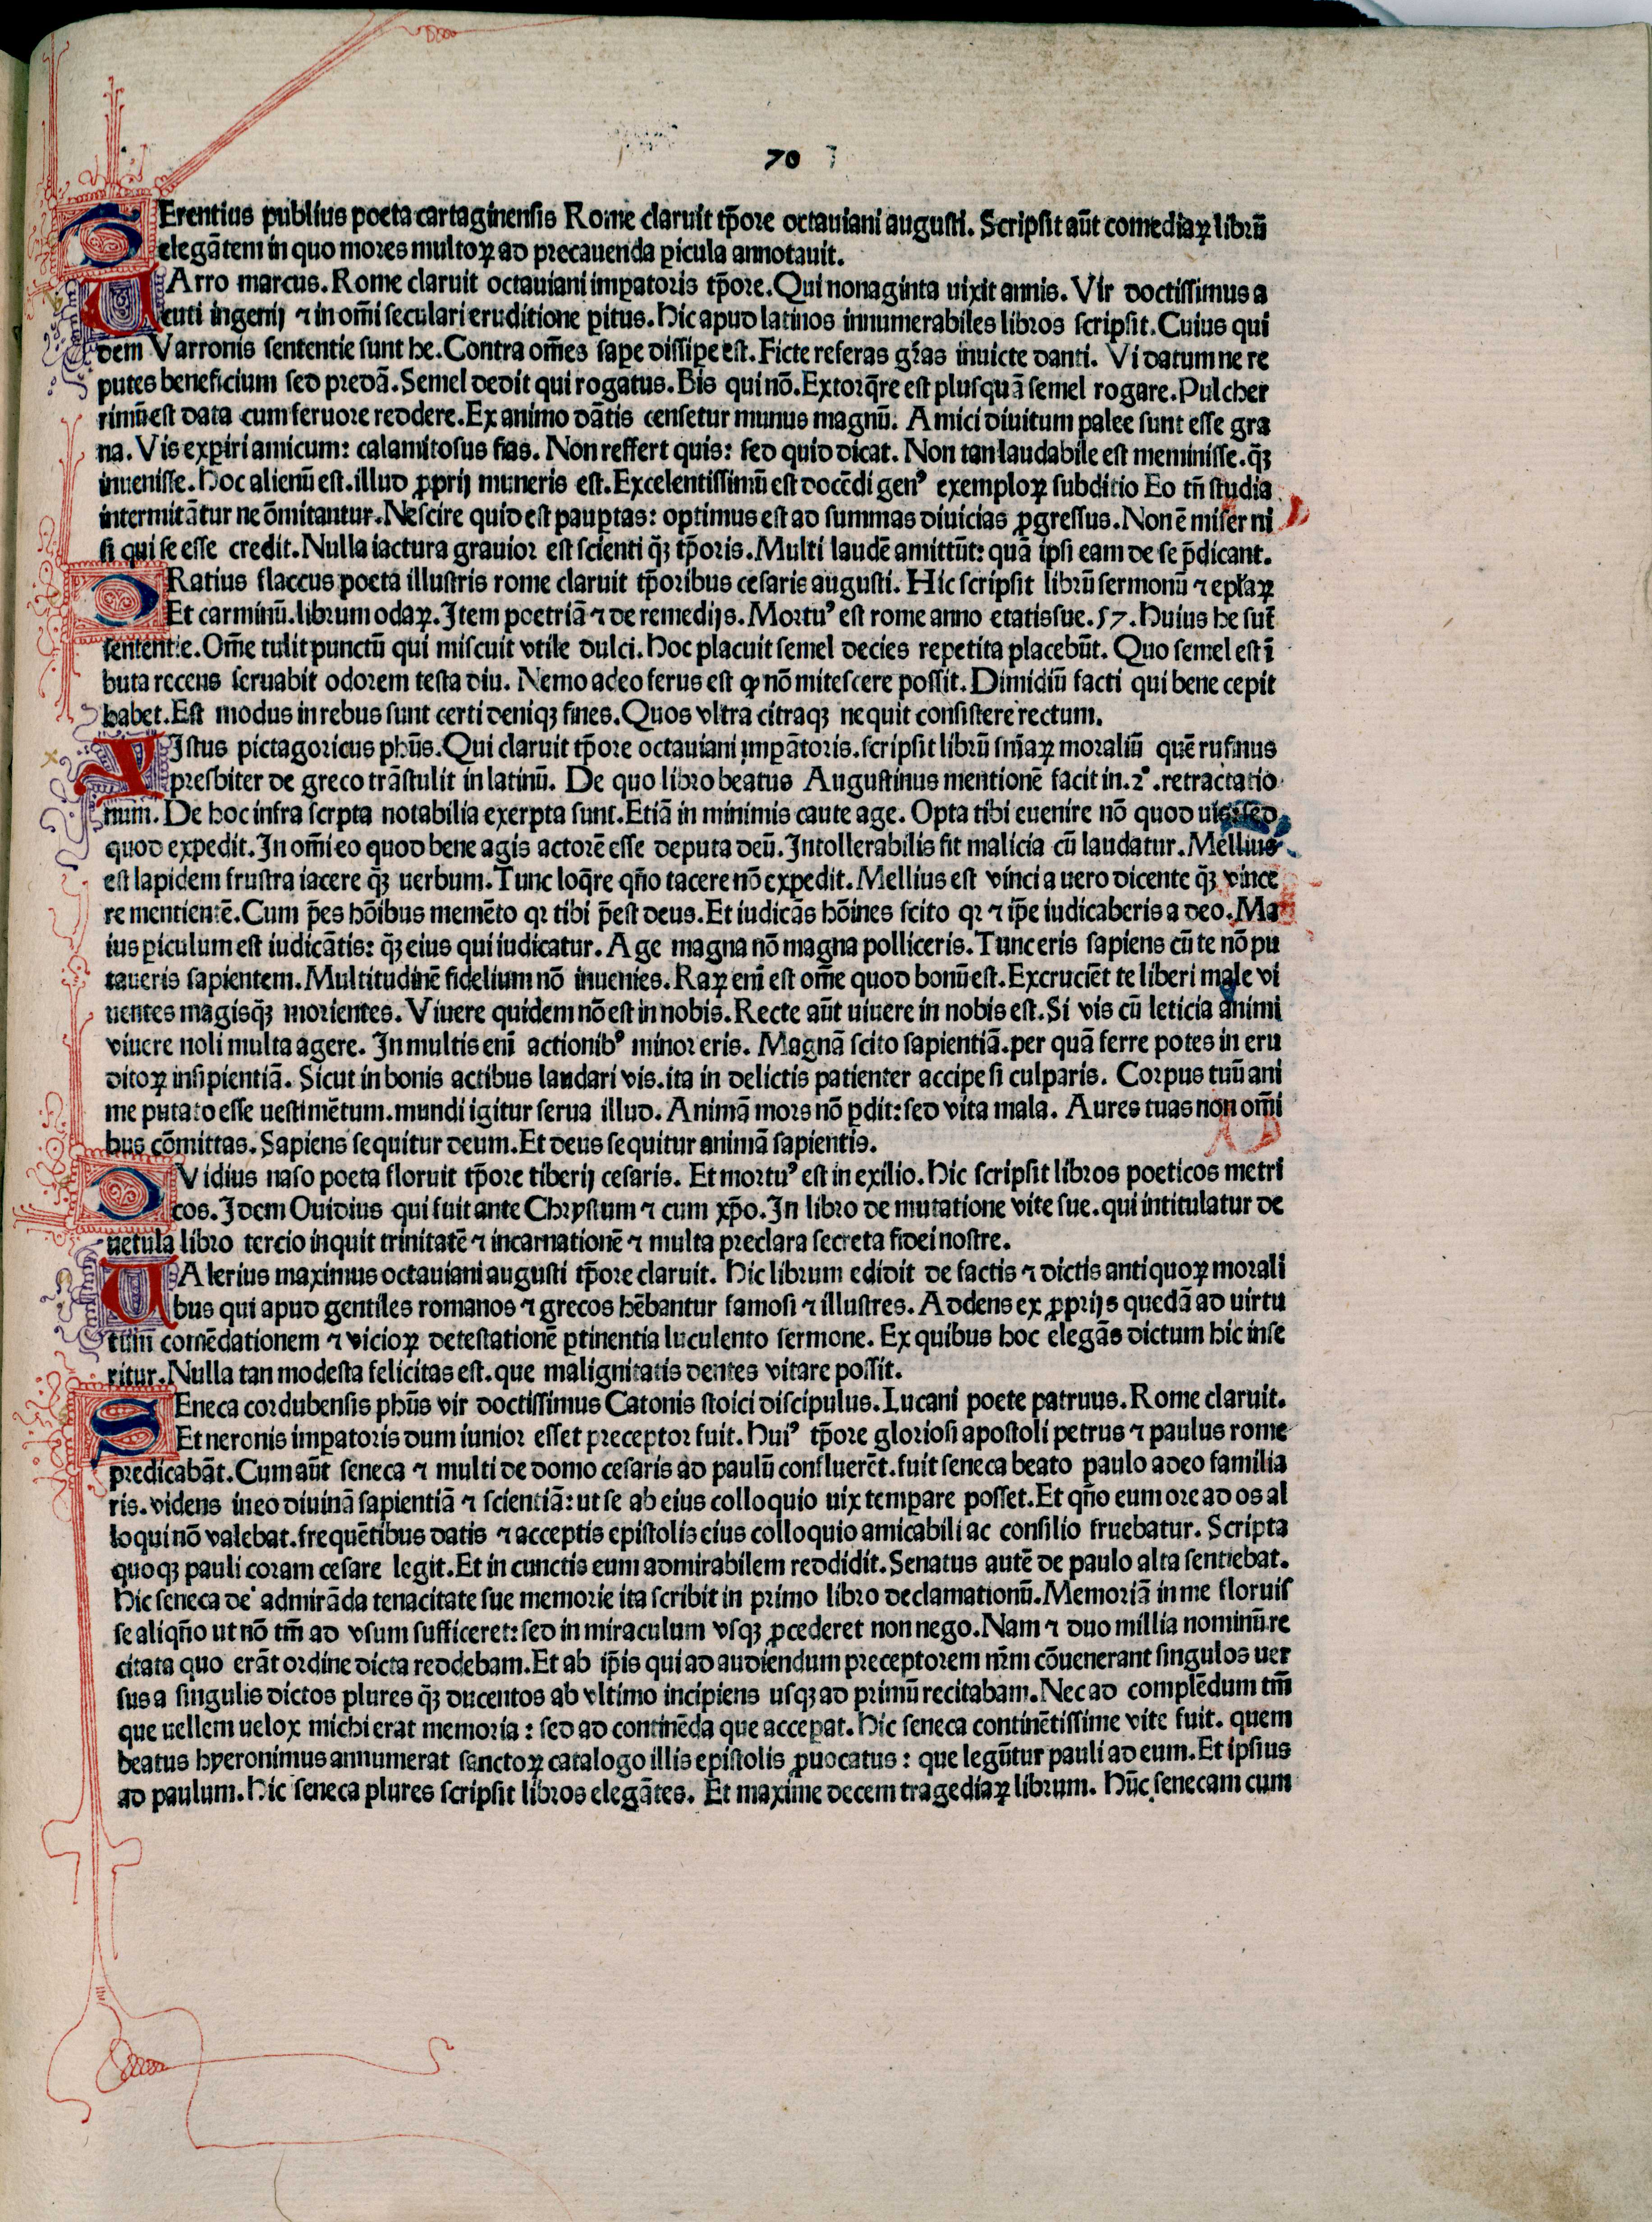 70
TErentius publius poeta cartaginensis Rome claruit tp̄ore octauiani augusti. Scripsit aūt comediaꝝ librū
elegātem in quo mores multoꝝ ad precauenda ꝑicula annotauit.
UArro marcus. Rome claruit octauiani imꝑatoris tp̄ore. Qui nonaginta uixit annis. Vir doctissimus a
cuti ingenij ⁊ in om̄i seculari eruditione ꝑitus. Hic apud latinos innumerabiles libros scripsit. Cuius qui
dem Varronis sententie sunt he. Contra om̄es saꝑe dissiꝑe est. Ficte referas gr̄as inuicte danti. Vi datum ne re
putes beneficium sed predā. Semel dedit qui rogatus. Bis qui nō. Extorq̄re est plusquā semel rogare. Pulcher
rimū est data cum feruore reddere. Ex animo dātis censetur munus magnū. Amici diuitum palee sunt esse gra
na. Vis exꝑiri amicum: calamitosus fias. Non reffert quis: sed quid dicat. Non tan laudabile est meminisse. q̄ꝫ
inuenisse. Hoc alienū est. illud ꝓprij muneris est. Excelentissimū est docēdi genꝰ exemploꝝ subditio Eo tn̄ studia
intermitātur ne ōmitantur. Nescire quid est pauꝑtas: optimus est ad summas diuicias ꝓgressus. Non ē miser ni
si qui se esse credit. Nulla iactura grauior est scienti q̄ꝫ tp̄oris. Multi laudē amittūt: quā ipsi eam de se p̄dicant.
ORatius flaccus poeta illustris rome claruit tp̄oribus cesaris augusti. Hic scripsit librū sermonū ⁊ epł̄aꝝ
Et carminū. librum odaꝝ. Item poetriā ⁊ de remedijs. Mortuꝰ est rome anno etatis sue. 57. Huius he sūt
sententie. Om̄e tulit punctū qui miscuit vtile dulci. Hoc placuit semel decies repetita placebūt. Quo semel est ī
buta recens seruabit odorem testa diu. Nemo adeo ferus est ꝙ nō mitescere possit. Dimidiū facti qui bene cepit
habet. Est modus in rebus sunt certi deniqꝫ fines. Quos vltra citraqꝫ nequit consistere rectum.
XIstus pictagoricus ph̄us. Qui claruit tp̄ore octauiani imꝑātoris. scripsit librū sn̄iaꝝ moraliū quē rufinus
presbiter de greco trāstulit in latinū. De quo libro beatus Augustinus mentionē facit in. 2°. retractatio
num. De hoc infra scrpta notabilia exerpta sunt. Etiā in minimis caute age. Opta tibi euenire nō quod uis: sed
quod expedit. In om̄i eo quod bene agis actorē esse deputa deū. Intollerabilis fit malicia cū laudatur. Mellius
est lapidem frustra iacere q̄ꝫ uerbum. Tunc loq̄re qn̄o tacere nō expedit. Mellius est vinci a uero dicente q̄ꝫ vince
re mentientē. Cum p̄es hōibus memēto qꝛ tibi p̄est deus. Et iudicās hōines scito qꝛ ⁊ ip̄e iudicaberis a deo. Ma
ius ꝑiculum est iudicātis: q̄ꝫ eius qui iudicatur. Age magna nō magna polliceris. Tunc eris sapiens cū te nō pu
taueris sapientem. Multitudinē fidelium nō inuenies. Raꝝ enī est om̄e quod bonū est. Excruciēt te liberi male vi
uentes magisq̄ꝫ morientes. Viuere quidem nō est in nobis. Recte aūt uiuere in nobis est. Si vis cū leticia animi
viuere noli multa agere. In multis enī actionibꝰ minor eris. Magnā scito sapientiā. per quā ferre potes in eru
ditoꝝ insipientiā. Sicut in bonis actibus laudari vis. ita in delictis patienter accipe si culparis. Corpus tuū ani
me putato esse uestimētum. mundi igitur serua illud. Animā mors nō ꝑdit: sed vita mala. Aures tuas non om̄i
bus cōmittas. Sapiens sequitur deum. Et deus sequitur animā sapientis.
OVidius naso poeta floruit tp̄ore tiberij cesaris. Et mortuꝰ est in exilio. Hic scripsit libros poeticos metri
cos. Idem Ouidius qui fuit ante Chrystum ⁊ cum xp̄o. In libro de mutatione vite sue. qui intitulatur de
uetula libro tercio inquit trinitatē ⁊ incarnationē ⁊ multa preclara secreta fidei nostre.
UAlerius maximus octauiani augusti tp̄ore claruit. Hic librum edidit de factis ⁊ dictis antiquoꝝ morali
bus qui apud gentiles romanos ⁊ grecos hēbantur famosi ⁊ illustres. Addens ex ꝓprijs quedā ad uirtu
tum comēdationem ⁊ vicioꝝ detestationē ꝑtinentia luculento sermone. Ex quibus hoc elegās dictum hic inse
ritur. Nulla tan modesta felicitas est. que malignitatis dentes vitare possit.
SEneca cordubensis ph̄us vir doctissimus Catonis stoici discipulus. Lucani poete patruus. Rome claruit.
Et neronis imꝑatoris dum iunior esset preceptor fuit. Huiꝰ tp̄ore gloriosi apostoli petrus ⁊ paulus rome
predicabāt. Cum aūt seneca ⁊ multi de domo cesaris ad paulū confluerēt. fuit seneca beato paulo adeo familia
ris. videns in eo diuinā sapientiā ⁊ scientiā: ut se ab eius colloquio uix temꝑare posset. Et qn̄o eum ore ad os al
loqui nō valebat. frequētibus datis ⁊ acceptis epistolis eius colloquio amicabili ac consilio fruebatur. Scripta
quoqꝫ pauli coram cesare legit. Et in cunctis eum admirabilem reddidit. Senatus autē de paulo alta sentiebat.
Hic seneca de admirāda tenacitate sue memorie ita scribit in primo libro declamationū. Memoriā in me floruis
se aliqn̄o ut nō tm̄ ad vsum sufficeret: sed in miraculum vsqꝫ ꝓcederet non nego. Nam ⁊ duo millia nominū re
citata quo erāt ordine dicta reddebam. Et ab ip̄is qui ad audiendum preceptorem nr̄m cōuenerant singulos uer
sus a singulis dictos plures q̄ꝫ ducentos ab vltimo incipiens usqꝫ ad primū recitabam. Nec ad complēdum tm̄
que uellem uelox michi erat memoria: sed ad continēda que acceꝑat. Hic seneca continētissime vite fuit. quem
beatus hyeronimus annumerat sanctoꝝ catalogo illis epistolis ꝓuocatus: que legūtur pauli ad eum. Et ipsius
ad paulum. Hic seneca plures scripsit libros elegātes. Et maxime decem tragediaꝝ librum. Hūc senecam cum